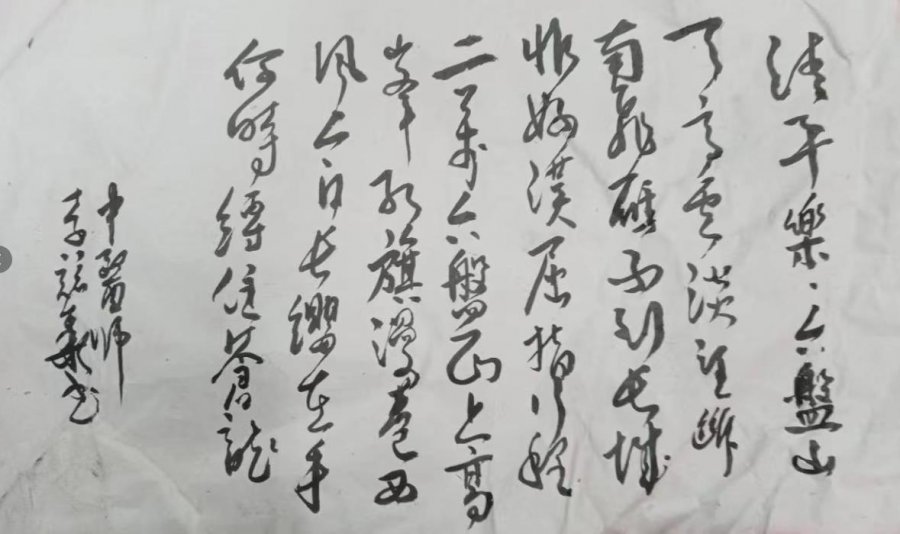 清平樂·六盤山
天高雲淡望斷
南飛雁不到長城
非好漢屈指行程
二萬六盤山上高
峯紅旗漫卷西
風今日長纓在手
何時縛住蒼龍
中醫師
李書